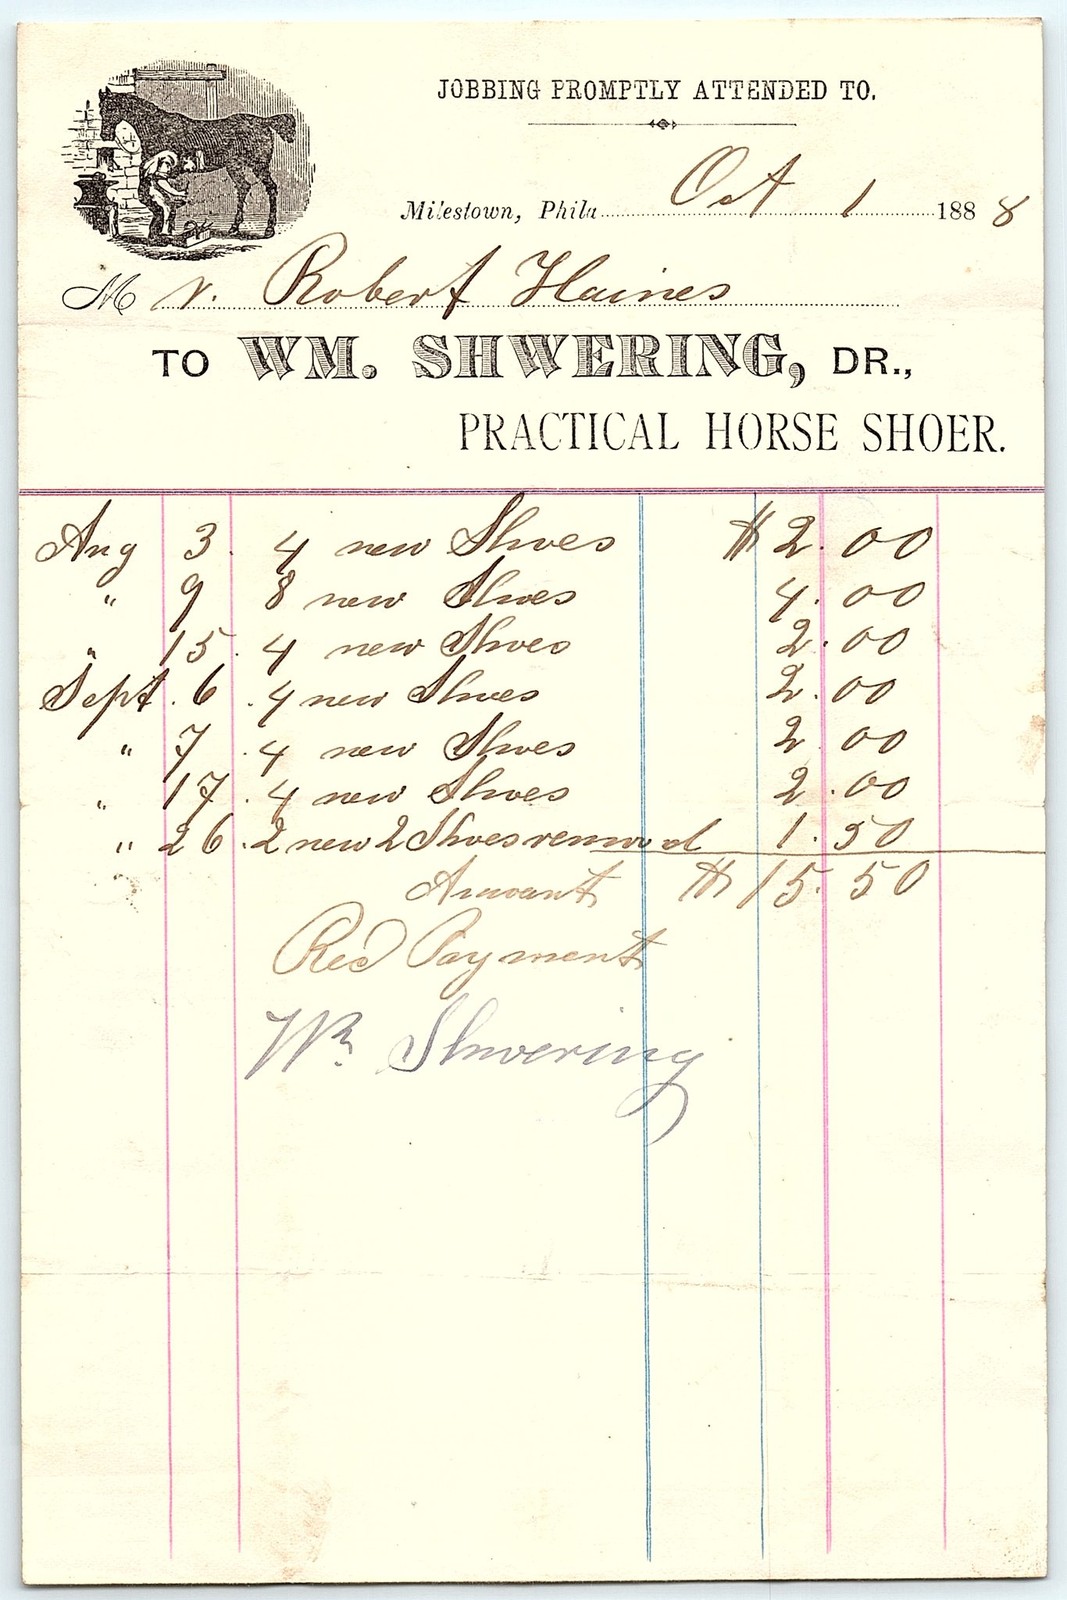 JOBBING PROMPTLY ATTENDED TO.
Milestown, Phila Oct 1 1888
Mr. Robert Haines
TO WM. SHWERING, DR.,
PRACTICAL HORSE SHOER.
Aug 3. 4 new Shoes $2.00
" 9 8 new Shoes 4.00
" 15. 4 new Shoes 2.00
Sept. 6 .4 new Shoes 2.00
" 7 .4 new Shoes 2.00
" 17 .4 new Shoes 2.00
" 26 .2 new 2 Shoes removed 1.50
Amount $15.50
Rec Payment
Wm Shwering